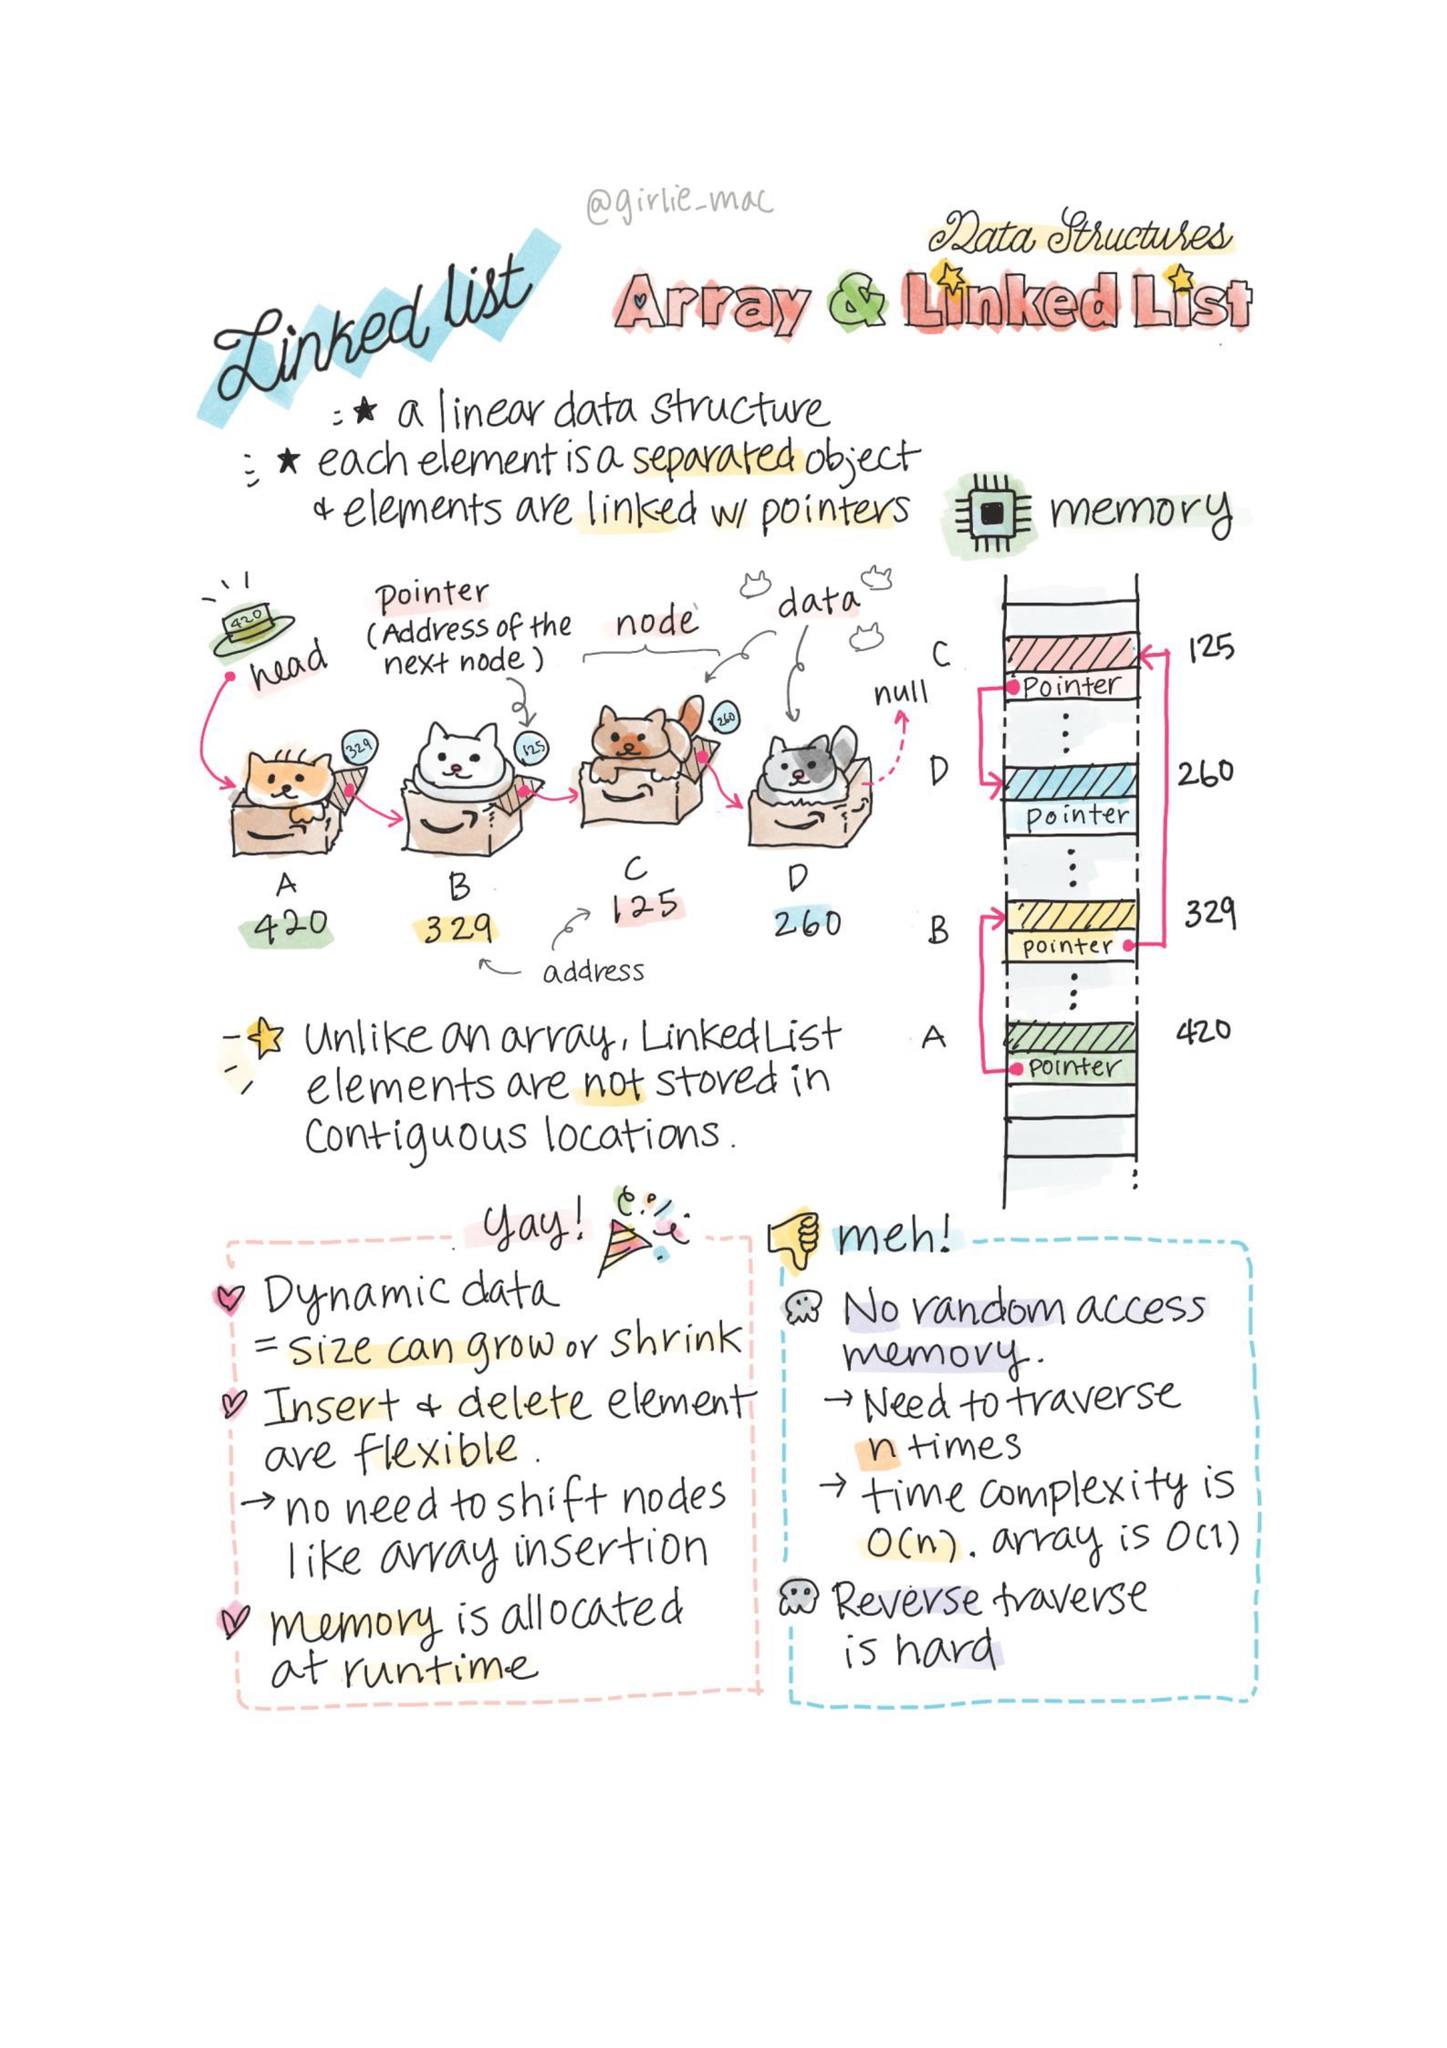 @girlie_mac
Data Structures
Array & Linked List
Linked list
★ a linear data structure
★ each element is a separated object
& elements are linked w/ pointers
memory
420
head
pointer
(Address of the
next node)
node
data
null
329
125
260
A
420
B
329
C
125
D
260
address
C
125
pointer
D
260
pointer
B
329
pointer
A
420
pointer
Unlike an array, Linked List
elements are not stored in
contiguous locations.
yay!
Dynamic data
= size can grow or shrink
Insert & delete element
are flexible.
→ no need to shift nodes
like array insertion
memory is allocated
at runtime
meh!
No random access
memory.
→ Need to traverse
n times
→ time complexity is
O(n). array is O(1)
Reverse traverse
is hard